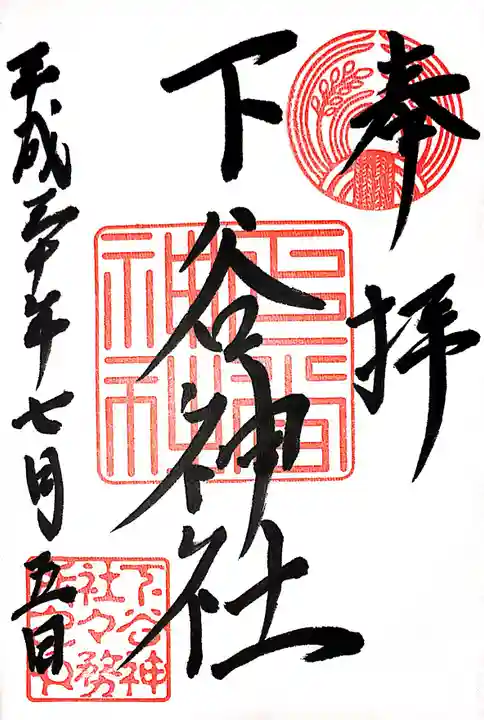 奉拝
下谷神社
平成三十年七月五日
下谷神社
下谷神
社々務